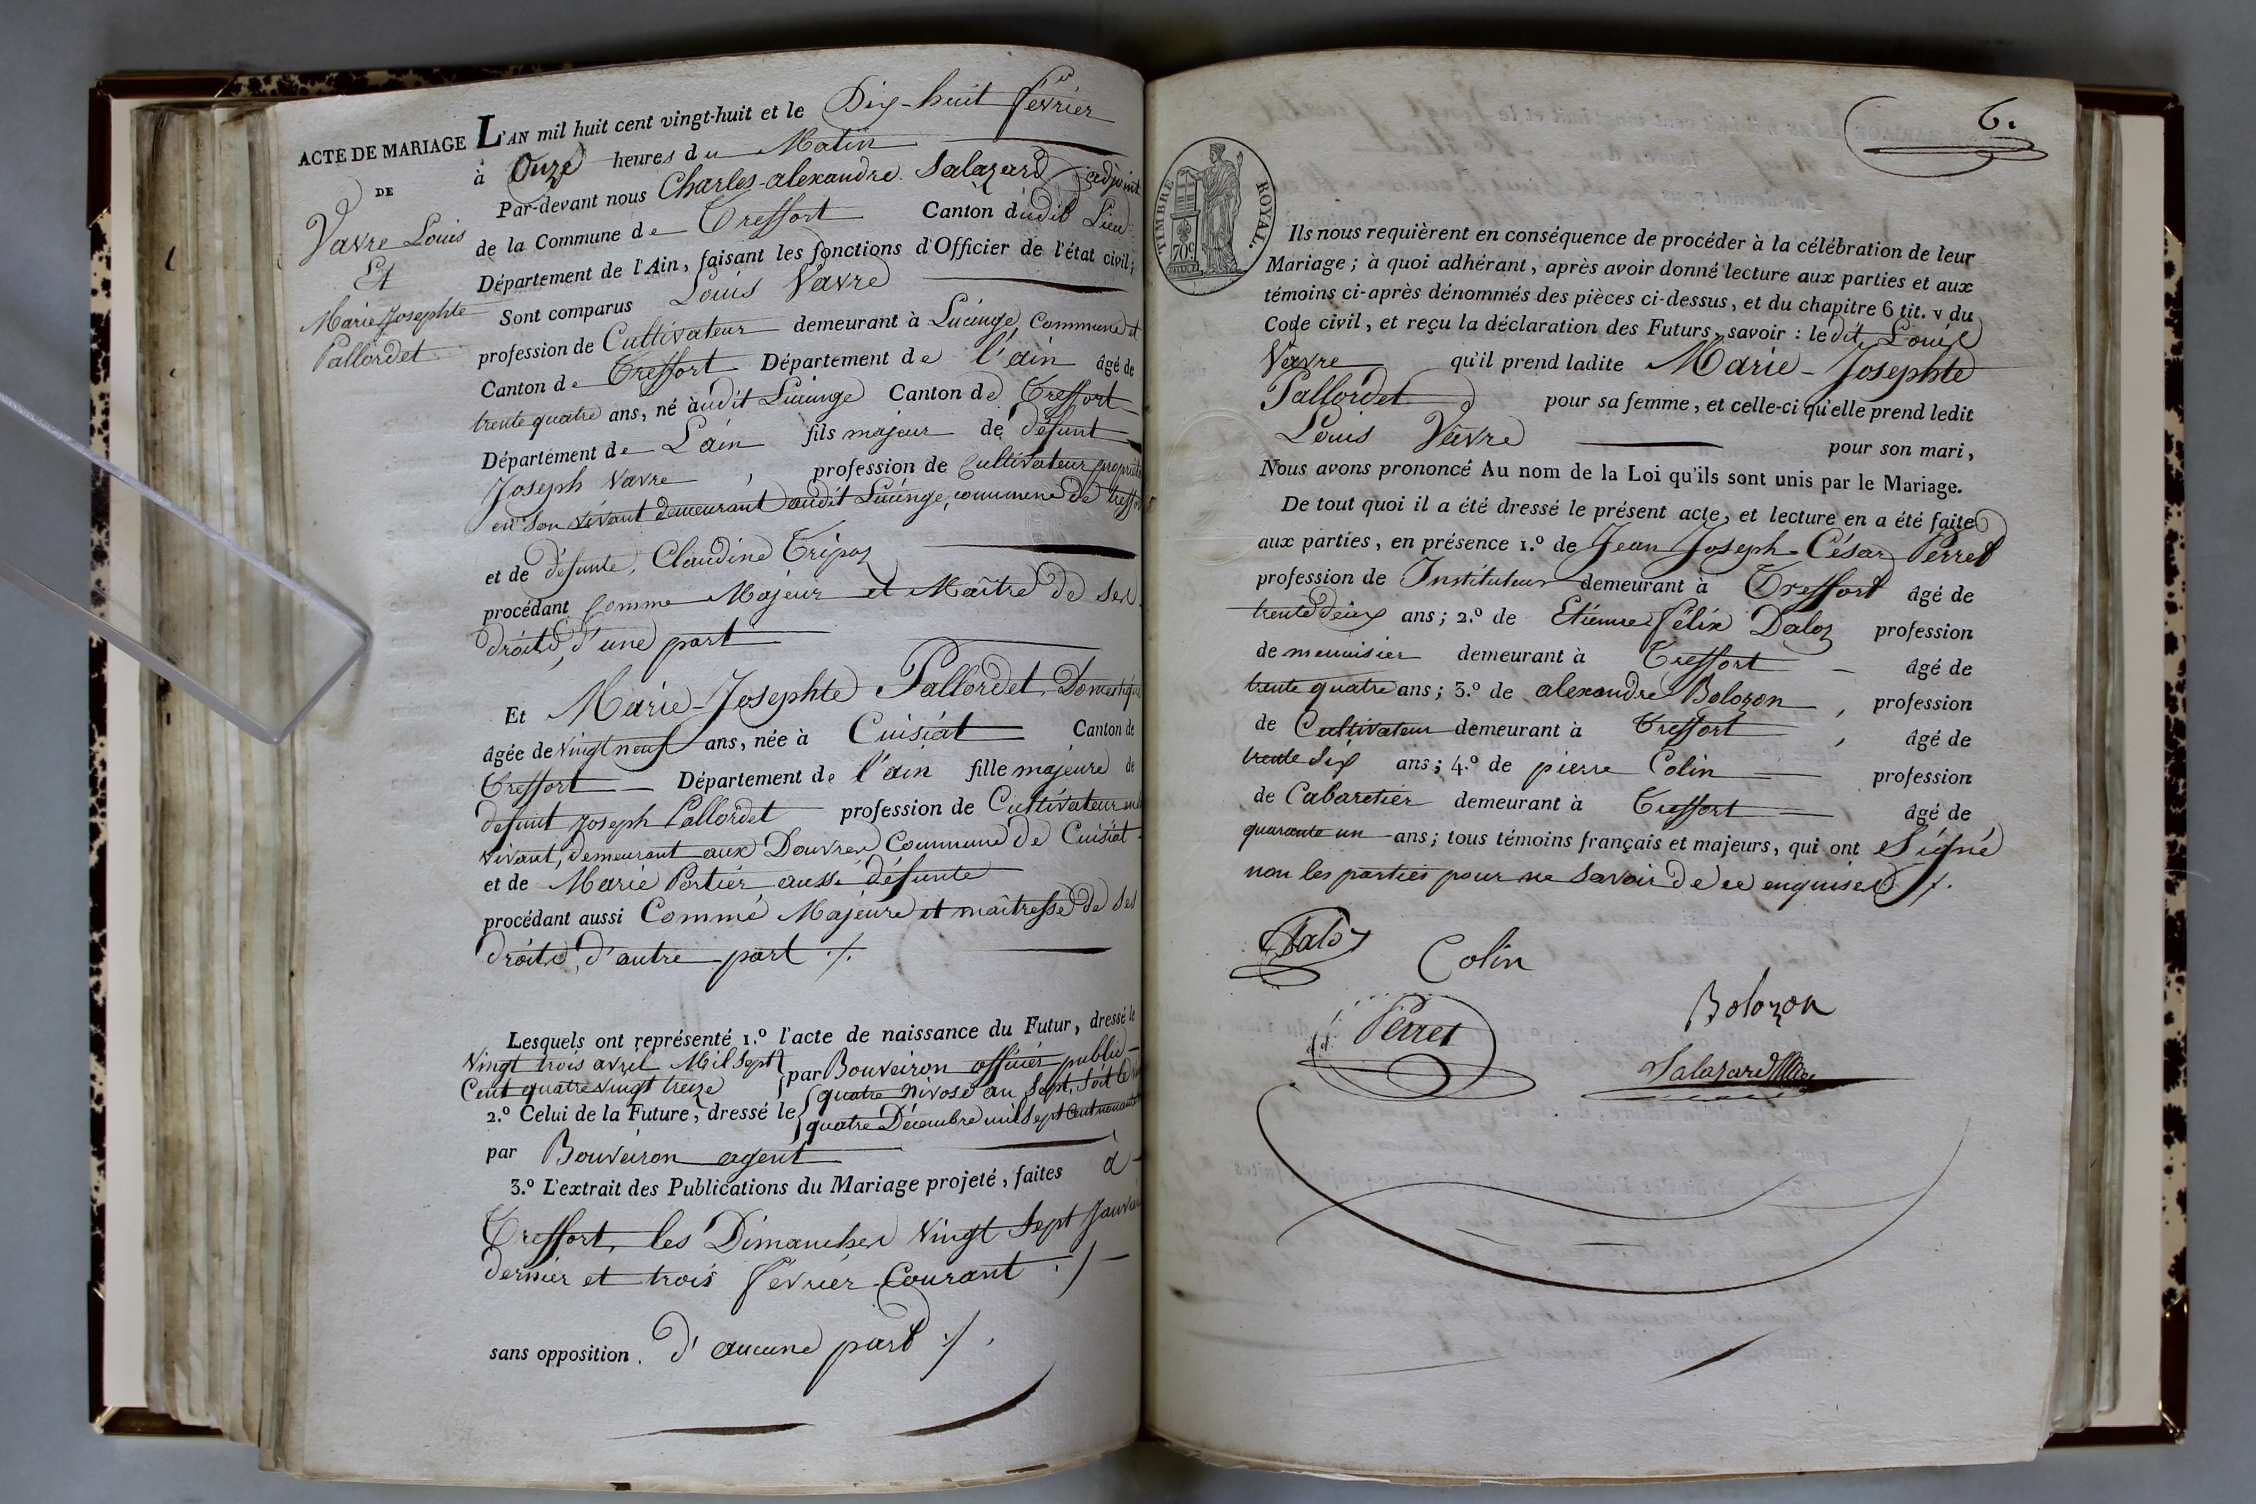 ACTE DE MARIAGE
DE
Vavre Louis
Et
Marie Josephte
Pallordet
L'AN mil huit cent vingt-huit et le Dix-huit fevrier
à Onze heures du Matin
Par-devant nous Charles-alexandre Salazard adjoint
de la Commune de Treffort Canton dudit Lieu
Département de l'Ain, faisant les fonctions d'Officier de l'état civil;
Sont comparus Louis Vavre
profession de Cultivateur demeurant à Lucinge Commune et
Canton de Treffort Département de l'ain âgé de
trente quatre ans, né audit Lucinge Canton de Treffort
Département de L'ain fils majeur de défunt
Joseph Vavre profession de Cultivateur propriét
en son vivant demeurant audit Lucinge, commune de treffort
et de défunte, Claudine Tripoz
procédant Comme Majeur et Maître de ses
droits, d'une part
Et Marie-Josephte Pallordet, Domestique
âgée de vingt neuf ans, née à Cuisiat Canton de
Treffort Département de l'ain fille majeure de
defunt Joseph Pallordet profession de Cultivateur en
vivant, demeurant aux Douvres Commune de Cuisiat
et de Marie Pertier aussi défunte
procédant aussi Comme Majeure et maîtresse de ses
droits, d'autre part ./.
Lesquels ont représenté 1.º l'acte de naissance du Futur, dressé le
Vingt trois avril Mil Sept
Cent quatre vingt treize par Bouveiron officier public
2.º Celui de la Future, dressé le quatre Nivose an Sept, Soit le
quatre Décembre mil Sept Cent nonante
par Bouveiron agent
3.º L'extrait des Publications du Mariage projeté, faites à
Treffort, les Dimanches Vingt Sept Janvier
dernier et trois fevrier Courant ./.
sans opposition. d'aucune part ./.
6.
TIMBRE ROYAL.
70c
Ils nous requièrent en conséquence de procéder à la célébration de leur
Mariage; à quoi adhérant, après avoir donné lecture aux parties et aux
témoins ci-après dénommés des pièces ci-dessus, et du chapitre 6 tit. v du
Code civil, et reçu la déclaration des Futurs, savoir : le dit Louis
Vavre qu'il prend ladite Marie-Josephte
Pallordet pour sa femme, et celle-ci qu'elle prend ledit
Louis Vavre pour son mari,
Nous avons prononcé Au nom de la Loi qu'ils sont unis par le Mariage.
De tout quoi il a été dressé le présent acte, et lecture en a été faite
aux parties, en présence 1.º de Jean Joseph-César Perret
profession de Instituteur demeurant à Treffort âgé de
trente deux ans; 2.º de Etienne Félix Daloz profession
de menuisier demeurant à Treffort âgé de
trente quatre ans; 3.º de alexandre Bolozon, profession
de Cultivateur demeurant à Treffort, âgé de
trente Six ans; 4.º de pierre Colin profession
de Cabaretier demeurant à Treffort âgé de
quarante un ans; tous témoins français et majeurs, qui ont Signé
non les parties pour ne Savoir de ce enquises ./.
Daloz
Colin
Perret
Bolozon
Salazard